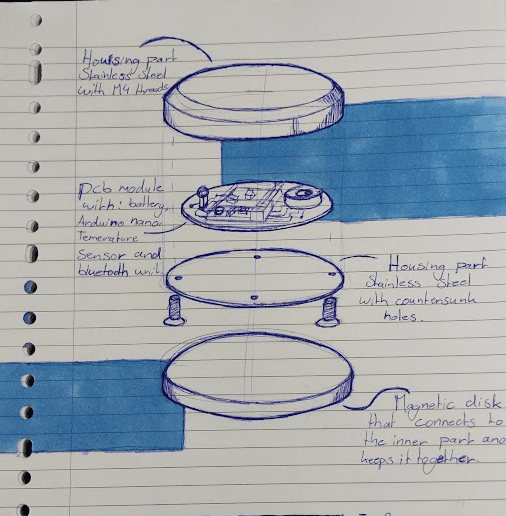 Housing part
Stainless Steel
with M4 threads
Pcb module
with: battery,
Arduino nano,
Temerature
Sensor and
bluetooth unit.
Housing part
Stainless Steel
with countersunk
holes.
Magnetic disk
that connects to
the inner part and
keeps it together.